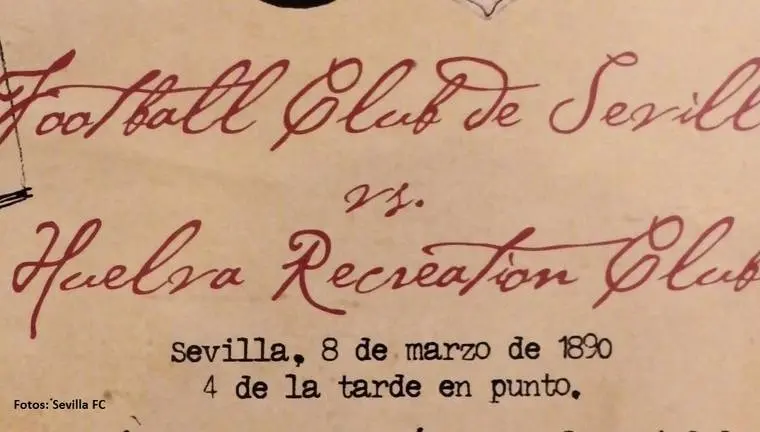 Football Club de Sevill
vs.
Huelva Recreation Club
Sevilla, 8 de marzo de 1890
4 de la tarde en punto.
Fotos: Sevilla FC